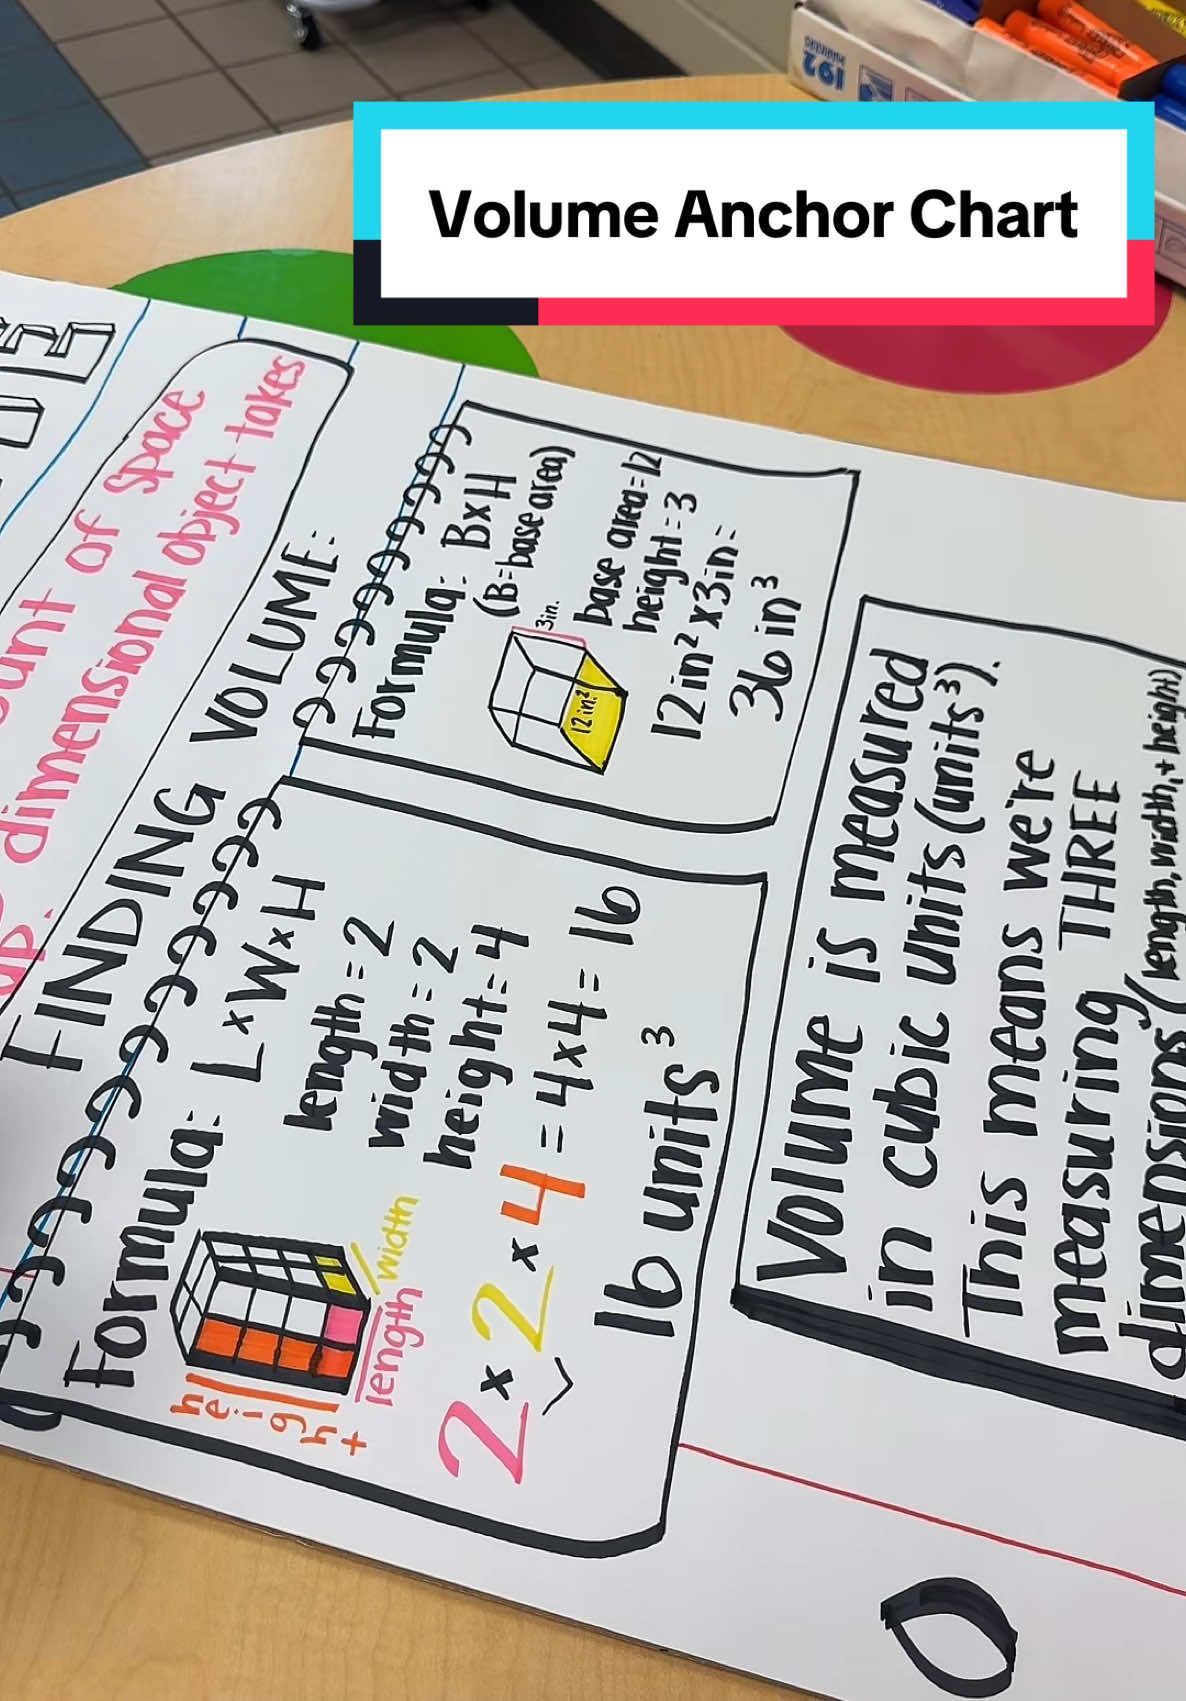 Volume Anchor Chart
192
of space
dimensional object takes
up.
FINDING VOLUME:
Formula: L×W×H
length=2
width=2
height=4
height
length
width
2×2×4=4×4=16
16 units³
Formula: B×H
(B=base area)
3in.
12in²
base area=12
height=3
12in²×3in=
36in³
Volume is measured
in cubic units (units³).
This means we're
measuring THREE
dimensions (length, width, + height)